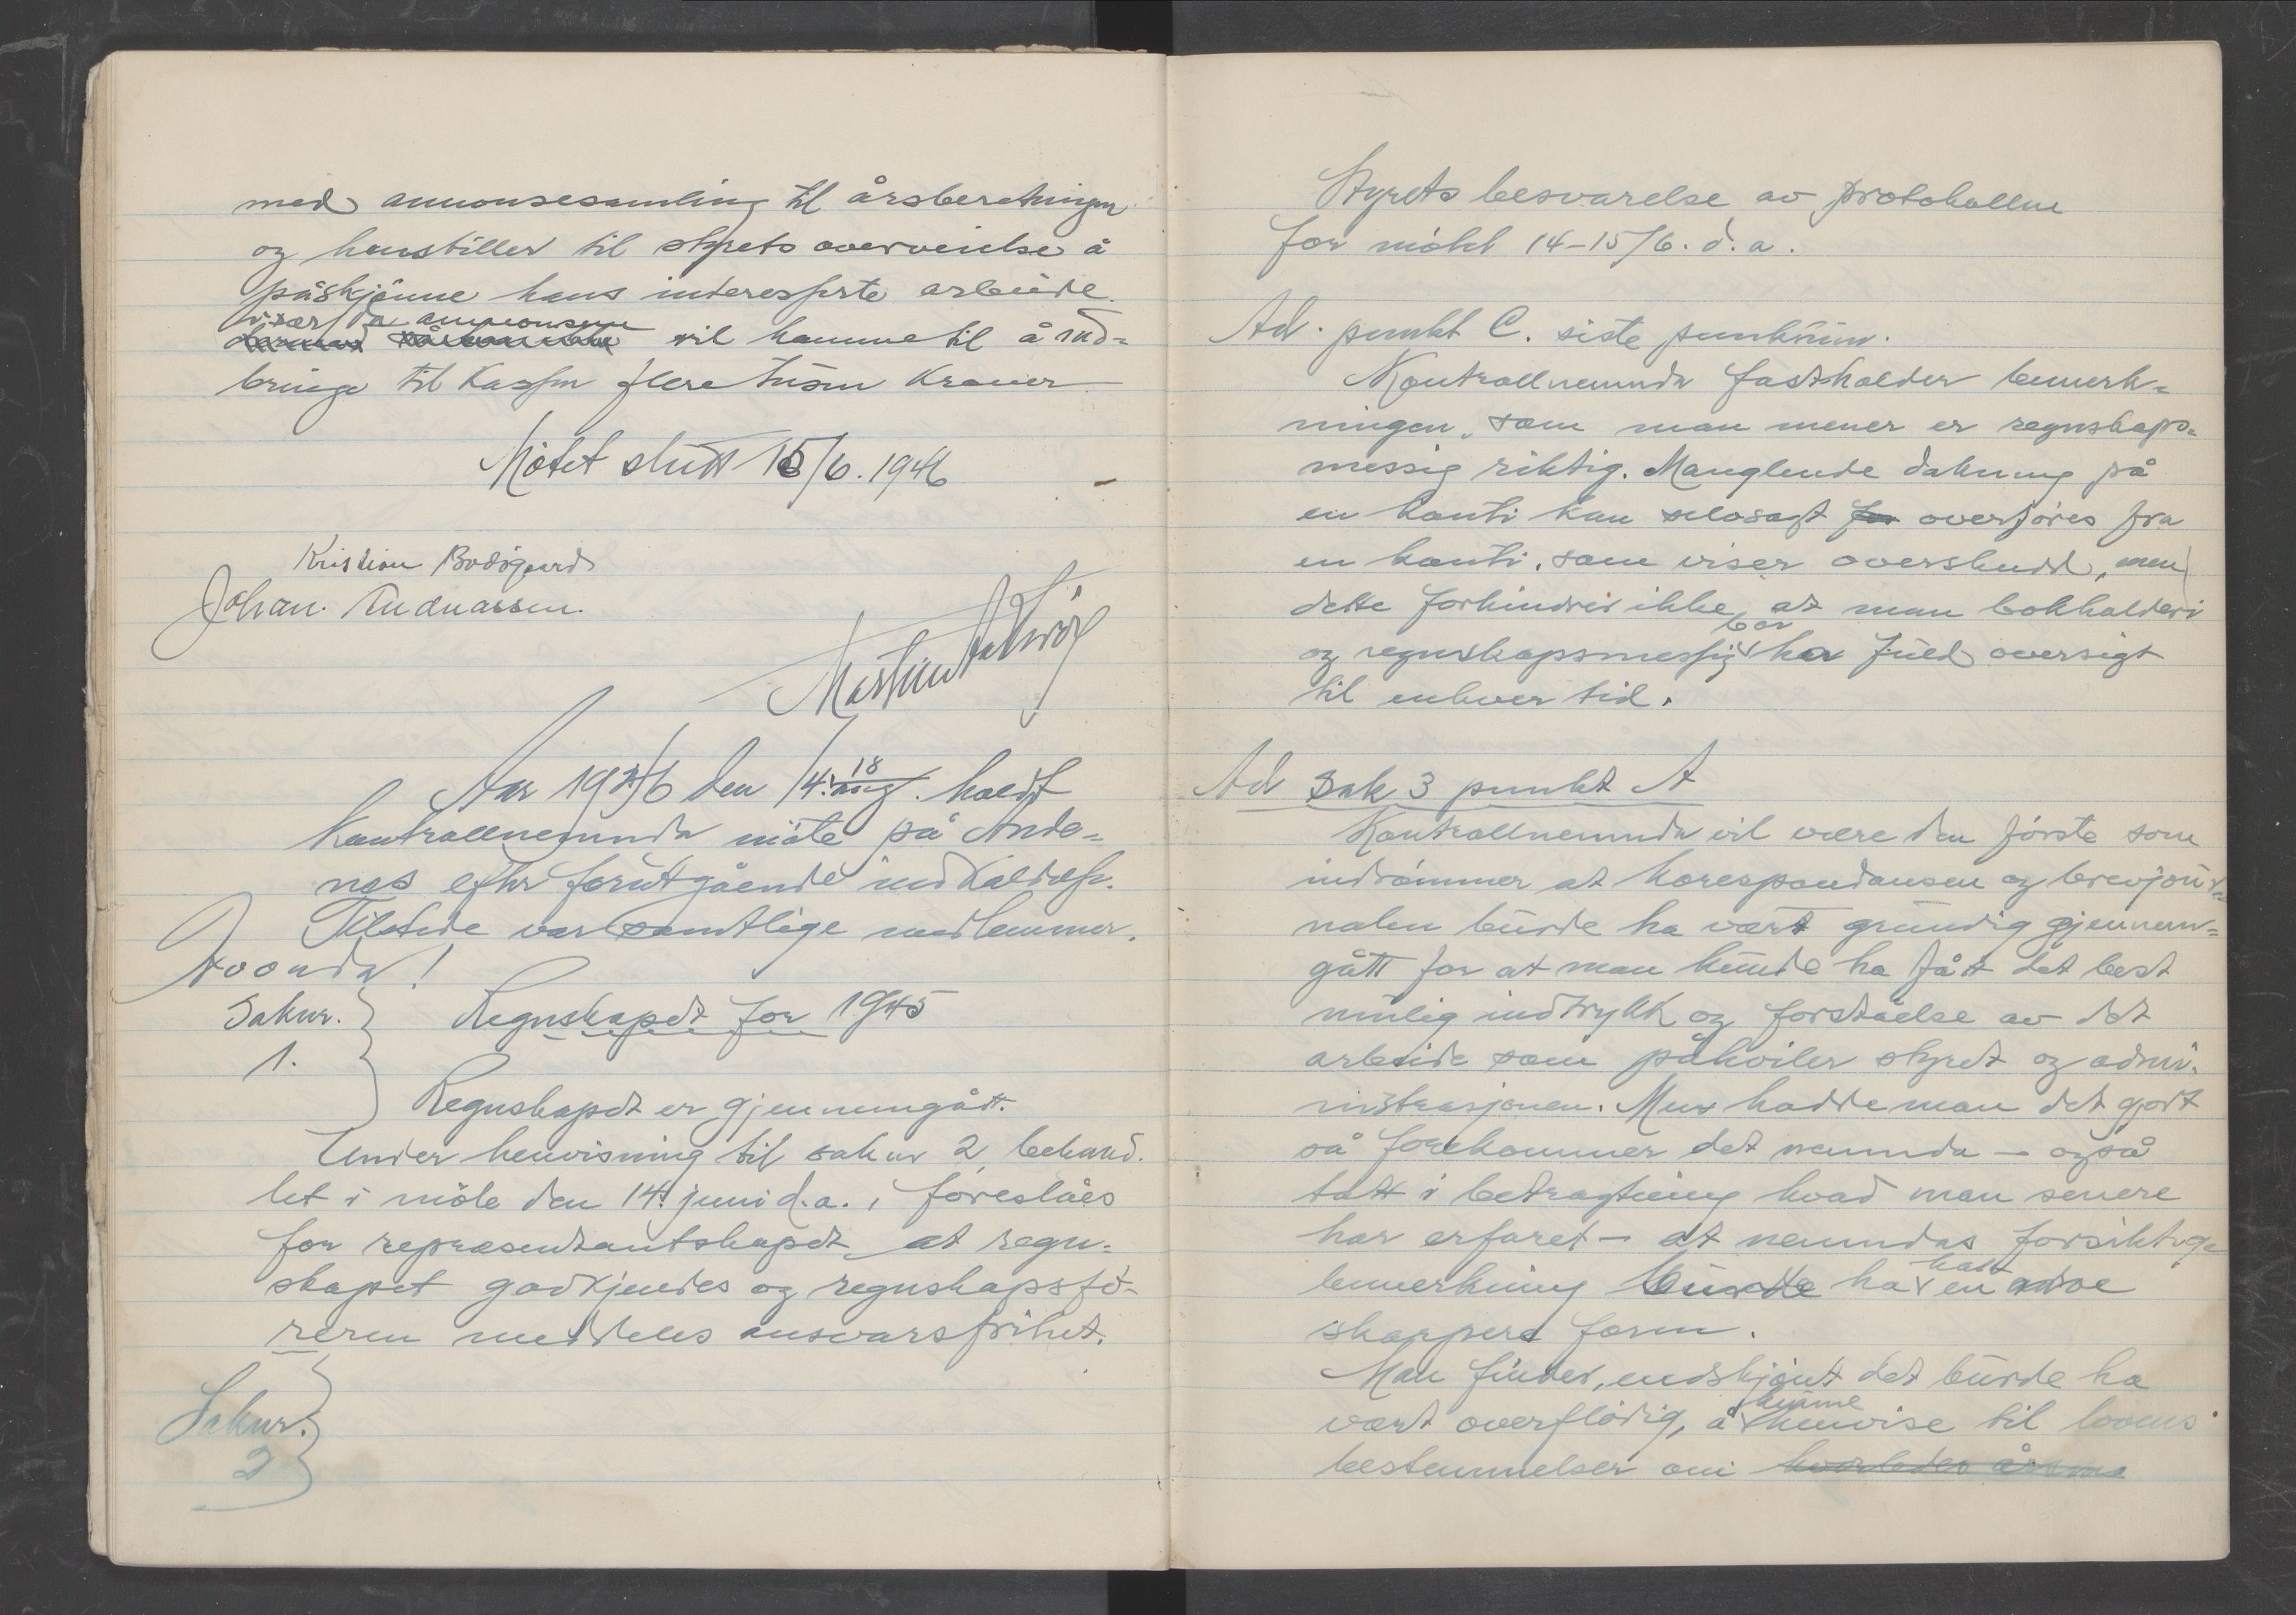 med annonsesamling til årsberetningen
og henstiller til styrets overveielse å
påskjønne hans interesserte arbeide.
især da annonsene
vil komme til å ind-
bringe til Kassen flere tusen Kroner
Møtet slutt 15/6. 1946
Kristian Bodøgaard
Johan
Martin
Aar 1946 den 14. 18/aug. holdt
Kontrollnemnda møte på Ande-
nes efter forutgående indkaldelse.
Tilstede var samtlige medlemmer.
Avonda!
Saknr. Regnskapet for 1945
1.
Regnskapet er gjennemgått.
Under henvisning til saknr 2, behand-
let i møte den 14. juni d.a., foreslåes
for representantskapet at regn-
skapet godkjendes og regnskapsfø-
reren meddeles ansvarsfrihet.
Saknr.
2
Styrets besvarelse av protokollen
for møtet 14-15/6. d.a.
Ad. punkt C. siste punktum.
Kontrollnemnda fastholder bemerk-
ningen, som man mener er regnskaps-
messig riktig. Manglende dekning på
en konti kan selvsagt for overføres fra
en konti, som viser overskudd, men
dette forhindrer ikke, at man bokholderi
og regnskapsmessig bør ha fuld oversigt
til enhver tid.
Ad sak 3 punkt A
Kontrollnemnda vil være den første som
indrømmer at korespondansen og brevjour-
nalen burde ha vært grundig gjennem-
gått for at man kunde ha fått det best
mulig indtrykk og forståelse av det
arbeide som påhviler styret og admi-
nistrasjonen. Men hadde man det gjort
så forekommer det nemnda - også
tatt i betragtning hvad man senere
har erfaret - at nemndas forsiktige
bemerkning burde ha hatt en
skarpere form.
Man finder, endskjønt det burde ha
vært overflødig, å kunne henvise til lovens
bestemmelser om hvorledes årsme